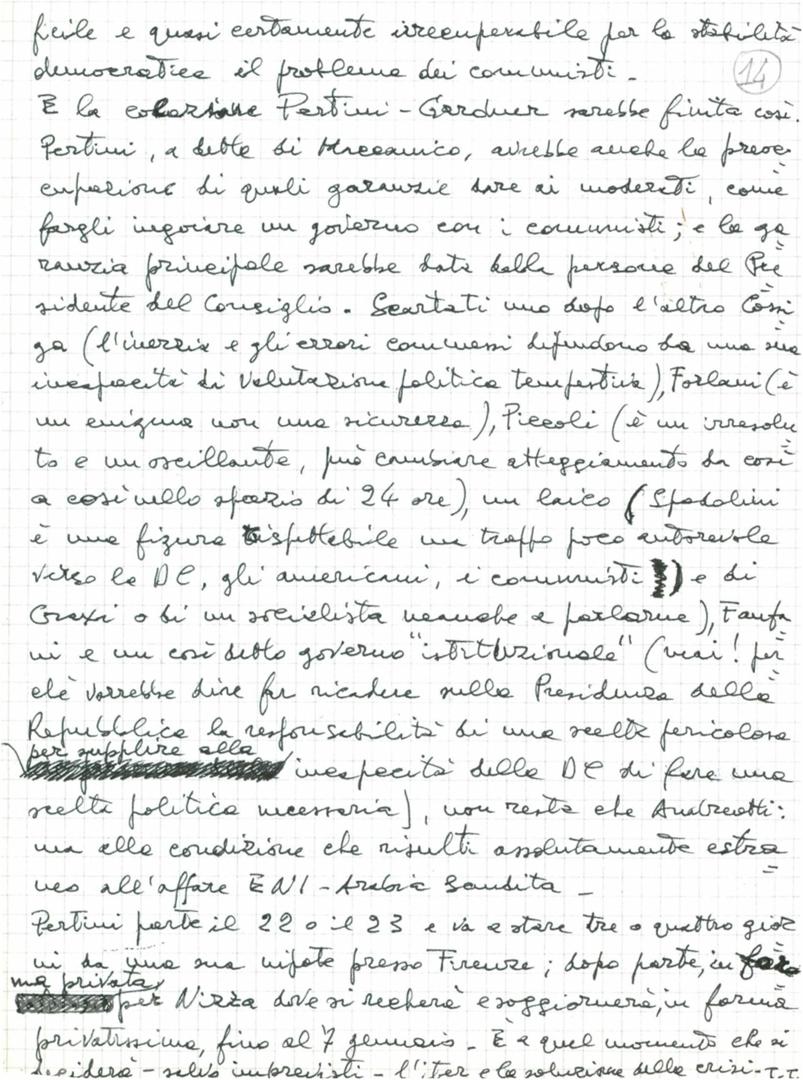 ficile e quasi certamente irrecuperabile per la stabilità
democratica il problema dei comunisti -
14
E la colazione Pertini - Gardner sarebbe finita così.
Pertini, a detta di Maccanico, avrebbe anche la preoc=
cupazione di quali garanzie dare ai moderati, come
fargli ingoiare un governo con i comunisti; e la ga=
ranzia principale sarebbe data dalla persona del Pre=
sidente del Consiglio. Scartati uno dopo l'altro Cossi=
ga (l'inerzia e gli errori commessi dipendono da una sua
incapacità di valutazione politica tempestiva), Forlani (è
un enigma non una sicurezza), Piccoli (è un irresolu=
to e un oscillante, può cambiare atteggiamento da così
a così nello spazio di 24 ore), un laico (Spadolini
è una figura rispettabile ma troppo poco autorevole
verso la DC, gli americani, i comunisti) e di
Craxi o di un socialista neanche a parlarne), Fanfa=
ni e un così detto governo "istituzionale" (mai! per=
chè vorrebbe dire far ricadere sulla Presidenza della
Repubblica la responsabilità di una scelta pericolosa
per supplire alla
incapacità della DC di fare una
scelta politica necessaria), non resta che Andreotti:
ma alla condizione che risulti assolutamente estra=
neo all'affare ENI - Arabia Saudita -
Pertini parte il 22 o il 23 e va a stare tre o quattro gior=
ni da una sua nipote presso Firenze; dopo parte, in for=
ma privata,
per Nizza dove si recherà e soggiornerà, in forma
privatissima, fino al 7 gennaio - È a quel momento che si
deciderà - salvo imprevisti - l'iter e la soluzione della crisi - T.T.